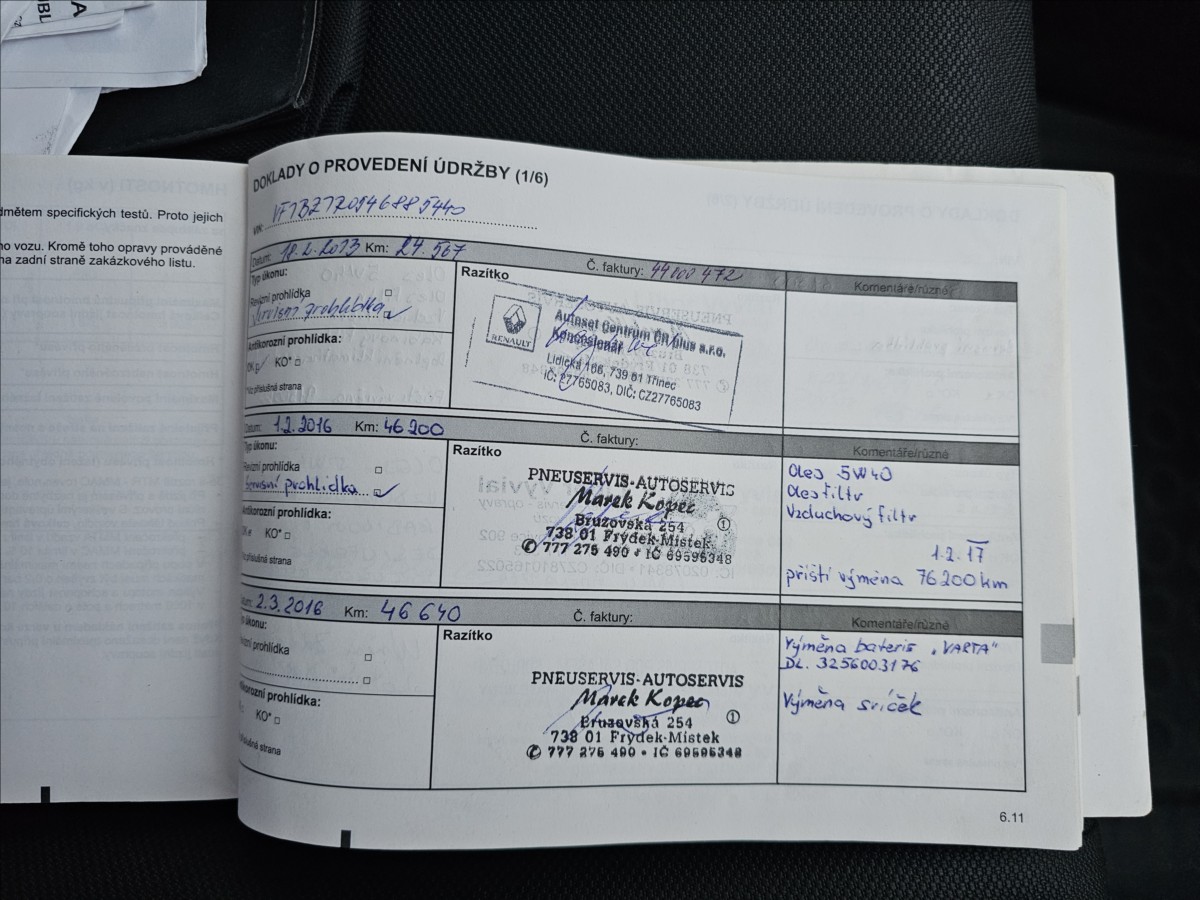 IBL
A
dmětem specifických testů. Proto jejich
ho vozu. Kromě toho opravy prováděné
na zadní straně zakázkového listu.
DOKLADY O PROVEDENÍ ÚDRŽBY (1/6)
VIN: VF1BZ7R0546885440
Datum: 18.2.2013 Km: 24.567 Č. faktury: 44000472 Komentáře/různé
Typ úkonu:
Revizní prohlídka
servisní prohlídka
Antikorozní prohlídka:
OK KO*
*Viz příslušná strana
Razítko
RENAULT
Autoset Centrum ČR plus s.r.o.
Koncesionář
Lidická 166, 739 61 Třinec
IČ: 27765083, DIČ: CZ27765083
Datum: 1.2.2016 Km: 46 200 Č. faktury: Komentáře/různé
Typ úkonu:
Revizní prohlídka
Servisní prohlídka
Antikorozní prohlídka:
KO*
příslušná strana
Razítko
PNEUSERVIS-AUTOSERVIS
Marek Kopec
Bruzovská 254 1
738 01 Frýdek-Místek
777 275 490 • IČ 69595348
Olej 5W40
Olej filtr
Vzduchový filtr
1.2.17
příští výměna 76200 km
2.3.2016 Km: 46 640 Č. faktury: Komentáře/různé
Typ úkonu:
prohlídka
prohlídka:
KO*
příslušná strana
Razítko
PNEUSERVIS-AUTOSERVIS
Marek Kopec
Bruzovská 254 1
738 01 Frýdek-Místek
777 275 490 • IČ 69595348
Výměna baterie „VARTA“
DL. 3256003176
Výměna svíček
6.11